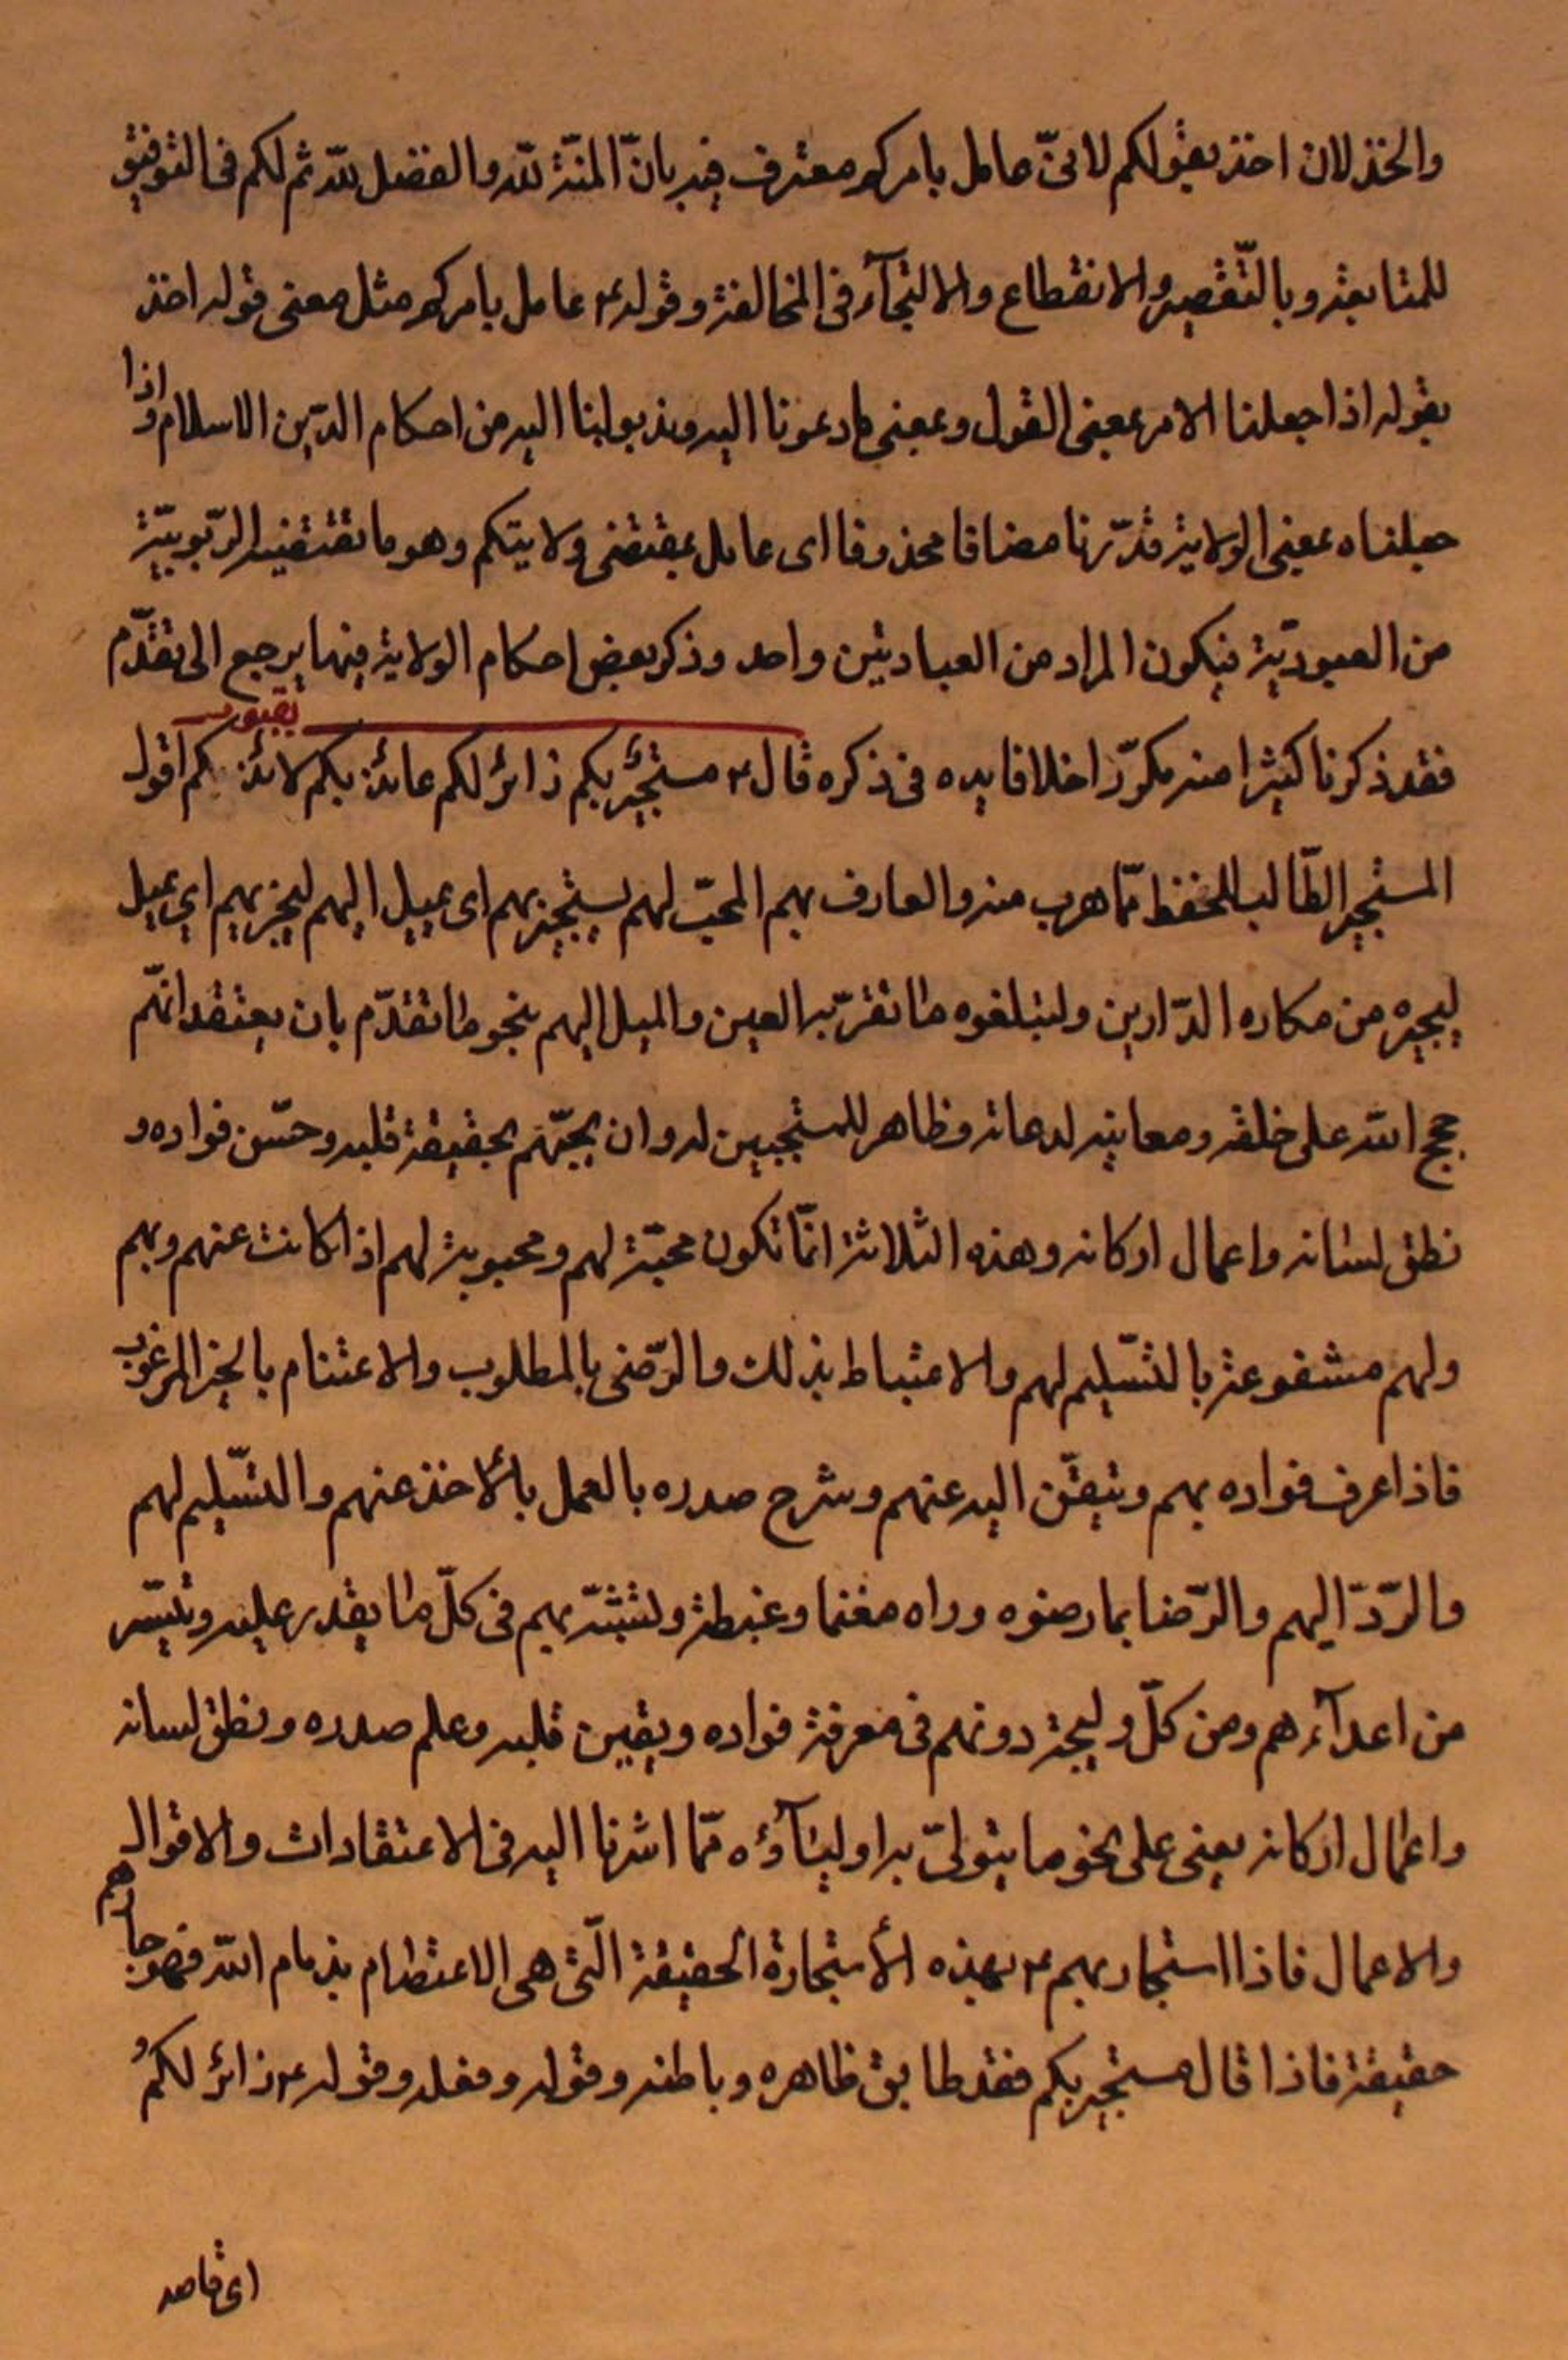 والخذلان اخذ بقولكم لانىّ عامل بامركم معترف فيه بانّ المنّة لله والفضل لله ثم لكم فى التوفيق
للمتابعة وبالتّقصير والانقطاع والالتجآء فى المخالفة وقوله ع عامل بامركم مثل معنى قوله اخذ
بقوله اذا جعلنا الامر بمعنى القول وبمعنى ما دعونا اليه وندبوا لنا اليه من احكام الدّين الاسلام واذا
جعلناه بمعنى الولاية قدّرنا مضافا محذوفا اى عامل بمقتضى ولايتكم وهو ما تقتضيه الرّبوبيّة
من العبوديّة فيكون المراد من العبادتين واحد وذكر بعض احكام الولاية فيها يرجع الى تقدّم
فقد ذكرنا كثيرا منه مكرّرا خلا فايده فى ذكره قال ع مستجير بكم زائر لكم عائذ بكم لائذ بقبوركم اقول
المستجير الطّالب للحفظ ممّا هرب منه والعارف بهم المحبّ لهم يستجير بهم اى يميل اليهم ليجيربهم اي يميل
ليجيره من مكاره الدّارين وليبلغوه ما تقرّ به العين والميل اليهم بنحو ما تقدّم بان يعتقد انهّم
حجج الله على خلقه ومعانيه لدعاته وظاهر للمستجبين له وان يحبّهم بحقيقة قلبه وحسّن فواده و
نطق لسانه واعمال اركانه وهذه الثلاثة انمّا تكون محبّة لهم ومحبوبة لهم اذا كانت عنهم وبهم
ولهم مشفوعة بالتسّليم لهم والاغتباط بذلك والرّضى بالمطلوب والاغتنام بالخير المرغوب
فاذا عرف فواده بهم وتيقّن اليه عنهم وشرح صدره بالعمل بالأخذ عنهم والتسّليم لهم
والرّدّ اليهم والرّضا بما رضوه وراه مغنما وغبطة وتشبّه بهم فى كلّ ما يقدر عليه وتيسّر
من اعدآءهم ومن كلّ وليجة دونهم فى معرفة فواده ويقين قلبه وعلم صدره ونطق لسانه
واعمال اركانه يعنى على نحو ما يتولىّ به اوليآؤه ممّا اشرنا اليه فى الاعتقادات والاقوال
والاعمال فاذا استجار بهم ع بهذه الأستجارة الحقيقة الّتى هى الاعتصام بذمام الله فهو جارهم
حقيقة فاذا قال مستجير بكم فقد طابق ظاهره وباطنه وقوله وفعله وقوله ع زائر لكم
اى قاصد